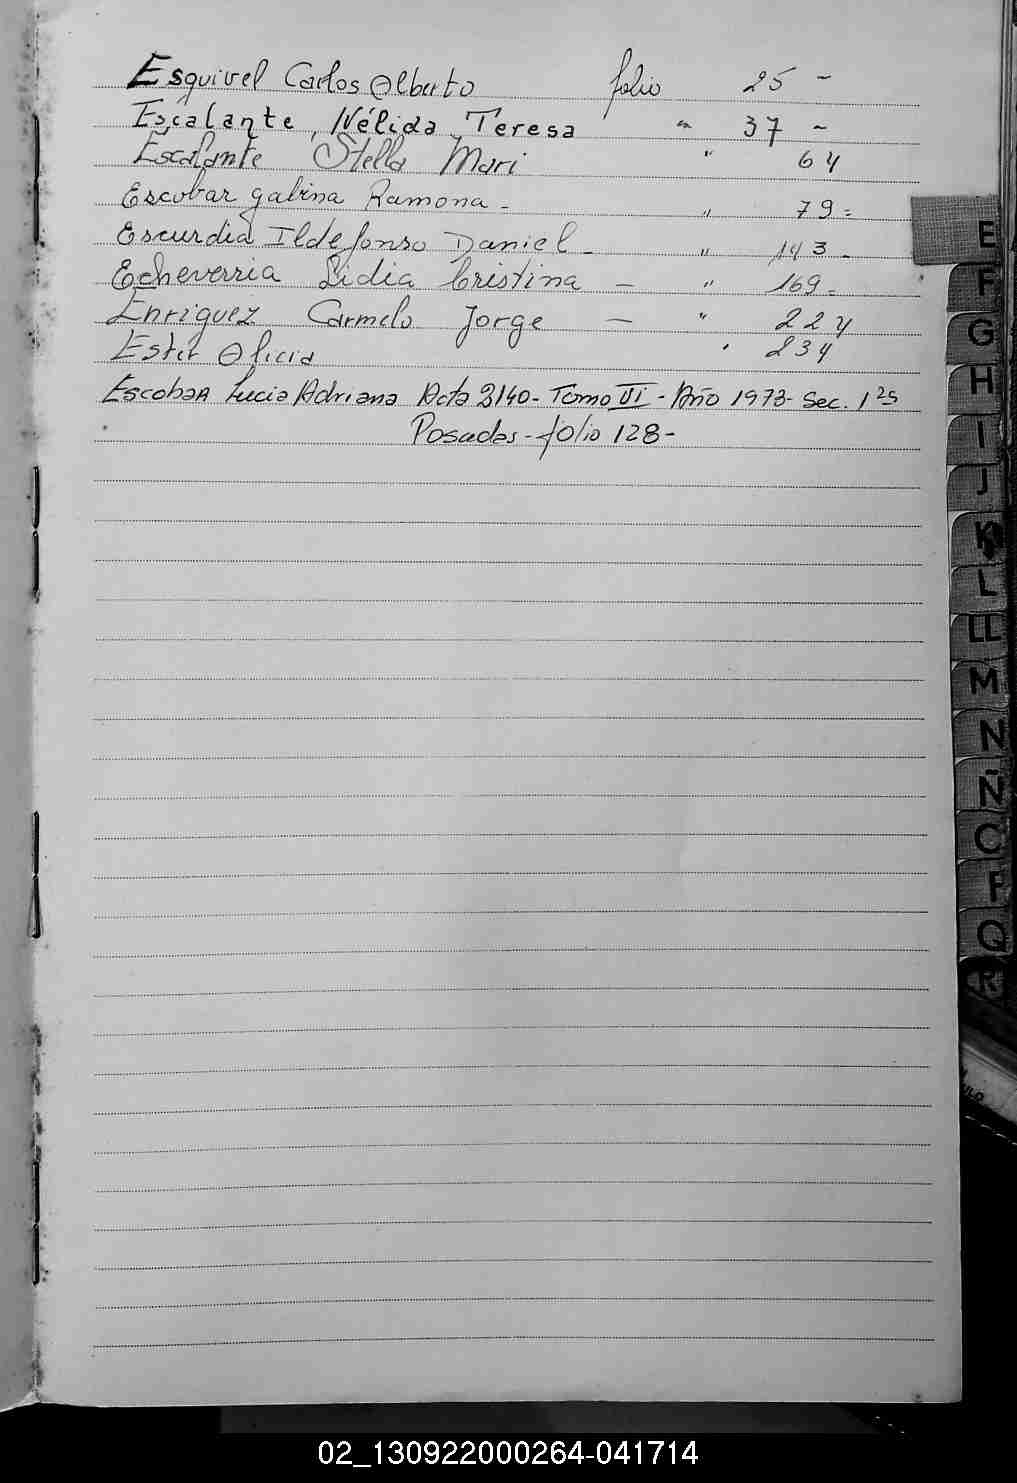 Esquivel Carlos Alberto folio 25 -
Escalante, Nélida Teresa " 37 -
Escalante Stella Mari " 64
Escobar gabina Ramona - " 79 =
Escurdia Ildefonso Daniel - " 143 -
Echeverria Lidia Cristina - " 169 -
Enriquez Carmelo Jorge - " 224
Alicia " 234
Escobar Lucia Adriana Acta 2140 - Tomo VI - Año 1973 - Sec. 1ªs
Posadas - folio 128 -
E
F
G
H
I
J
K
L
LL
M
N
Ñ
O
P
Q
R
02_130922000264-041714